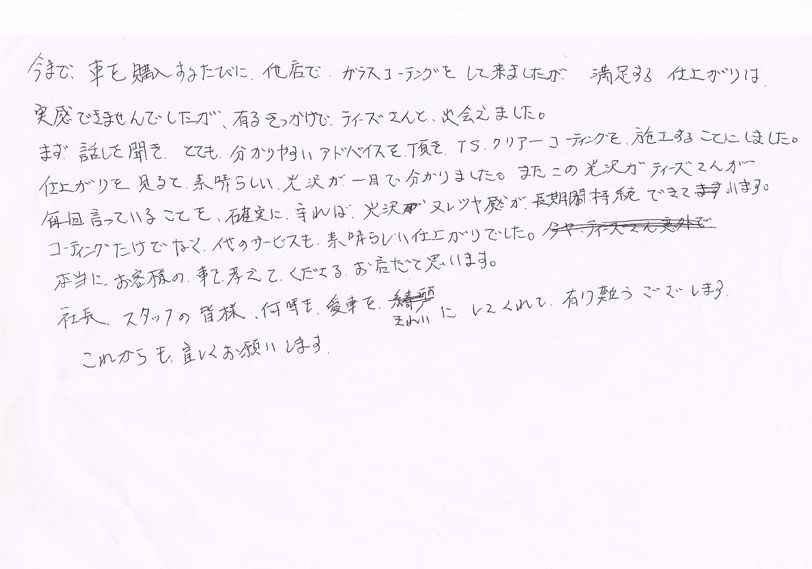 今まで、車を購入するたびに、他店で、ガラスコーティングをして来ましたが、満足する仕上がりは
実感できませんでしたが、有るきっかけで、ティーズさんと、出会えました。
まず話しを聞き、とても、分かりやすいアドバイスを、頂き、TS.クリアーコーティングを、施工することにしました。
仕上がりを見ると、素晴らしい、光沢が、一目で分かりました。またこの光沢がティーズさんが
毎回言っていることを、確実に、守れば、光沢やヌレツヤ感が、長期間持続できています。
コーティングだけでなく、他のサービスも、素晴らしい仕上がりでした。
本当に、お客様の、車を考えて、くださる、お店だと思います。
社長、スタッフの皆様、何時も、愛車を、きれいにしてくれて、有り難うございます。
これからも、宜しくお願いします。